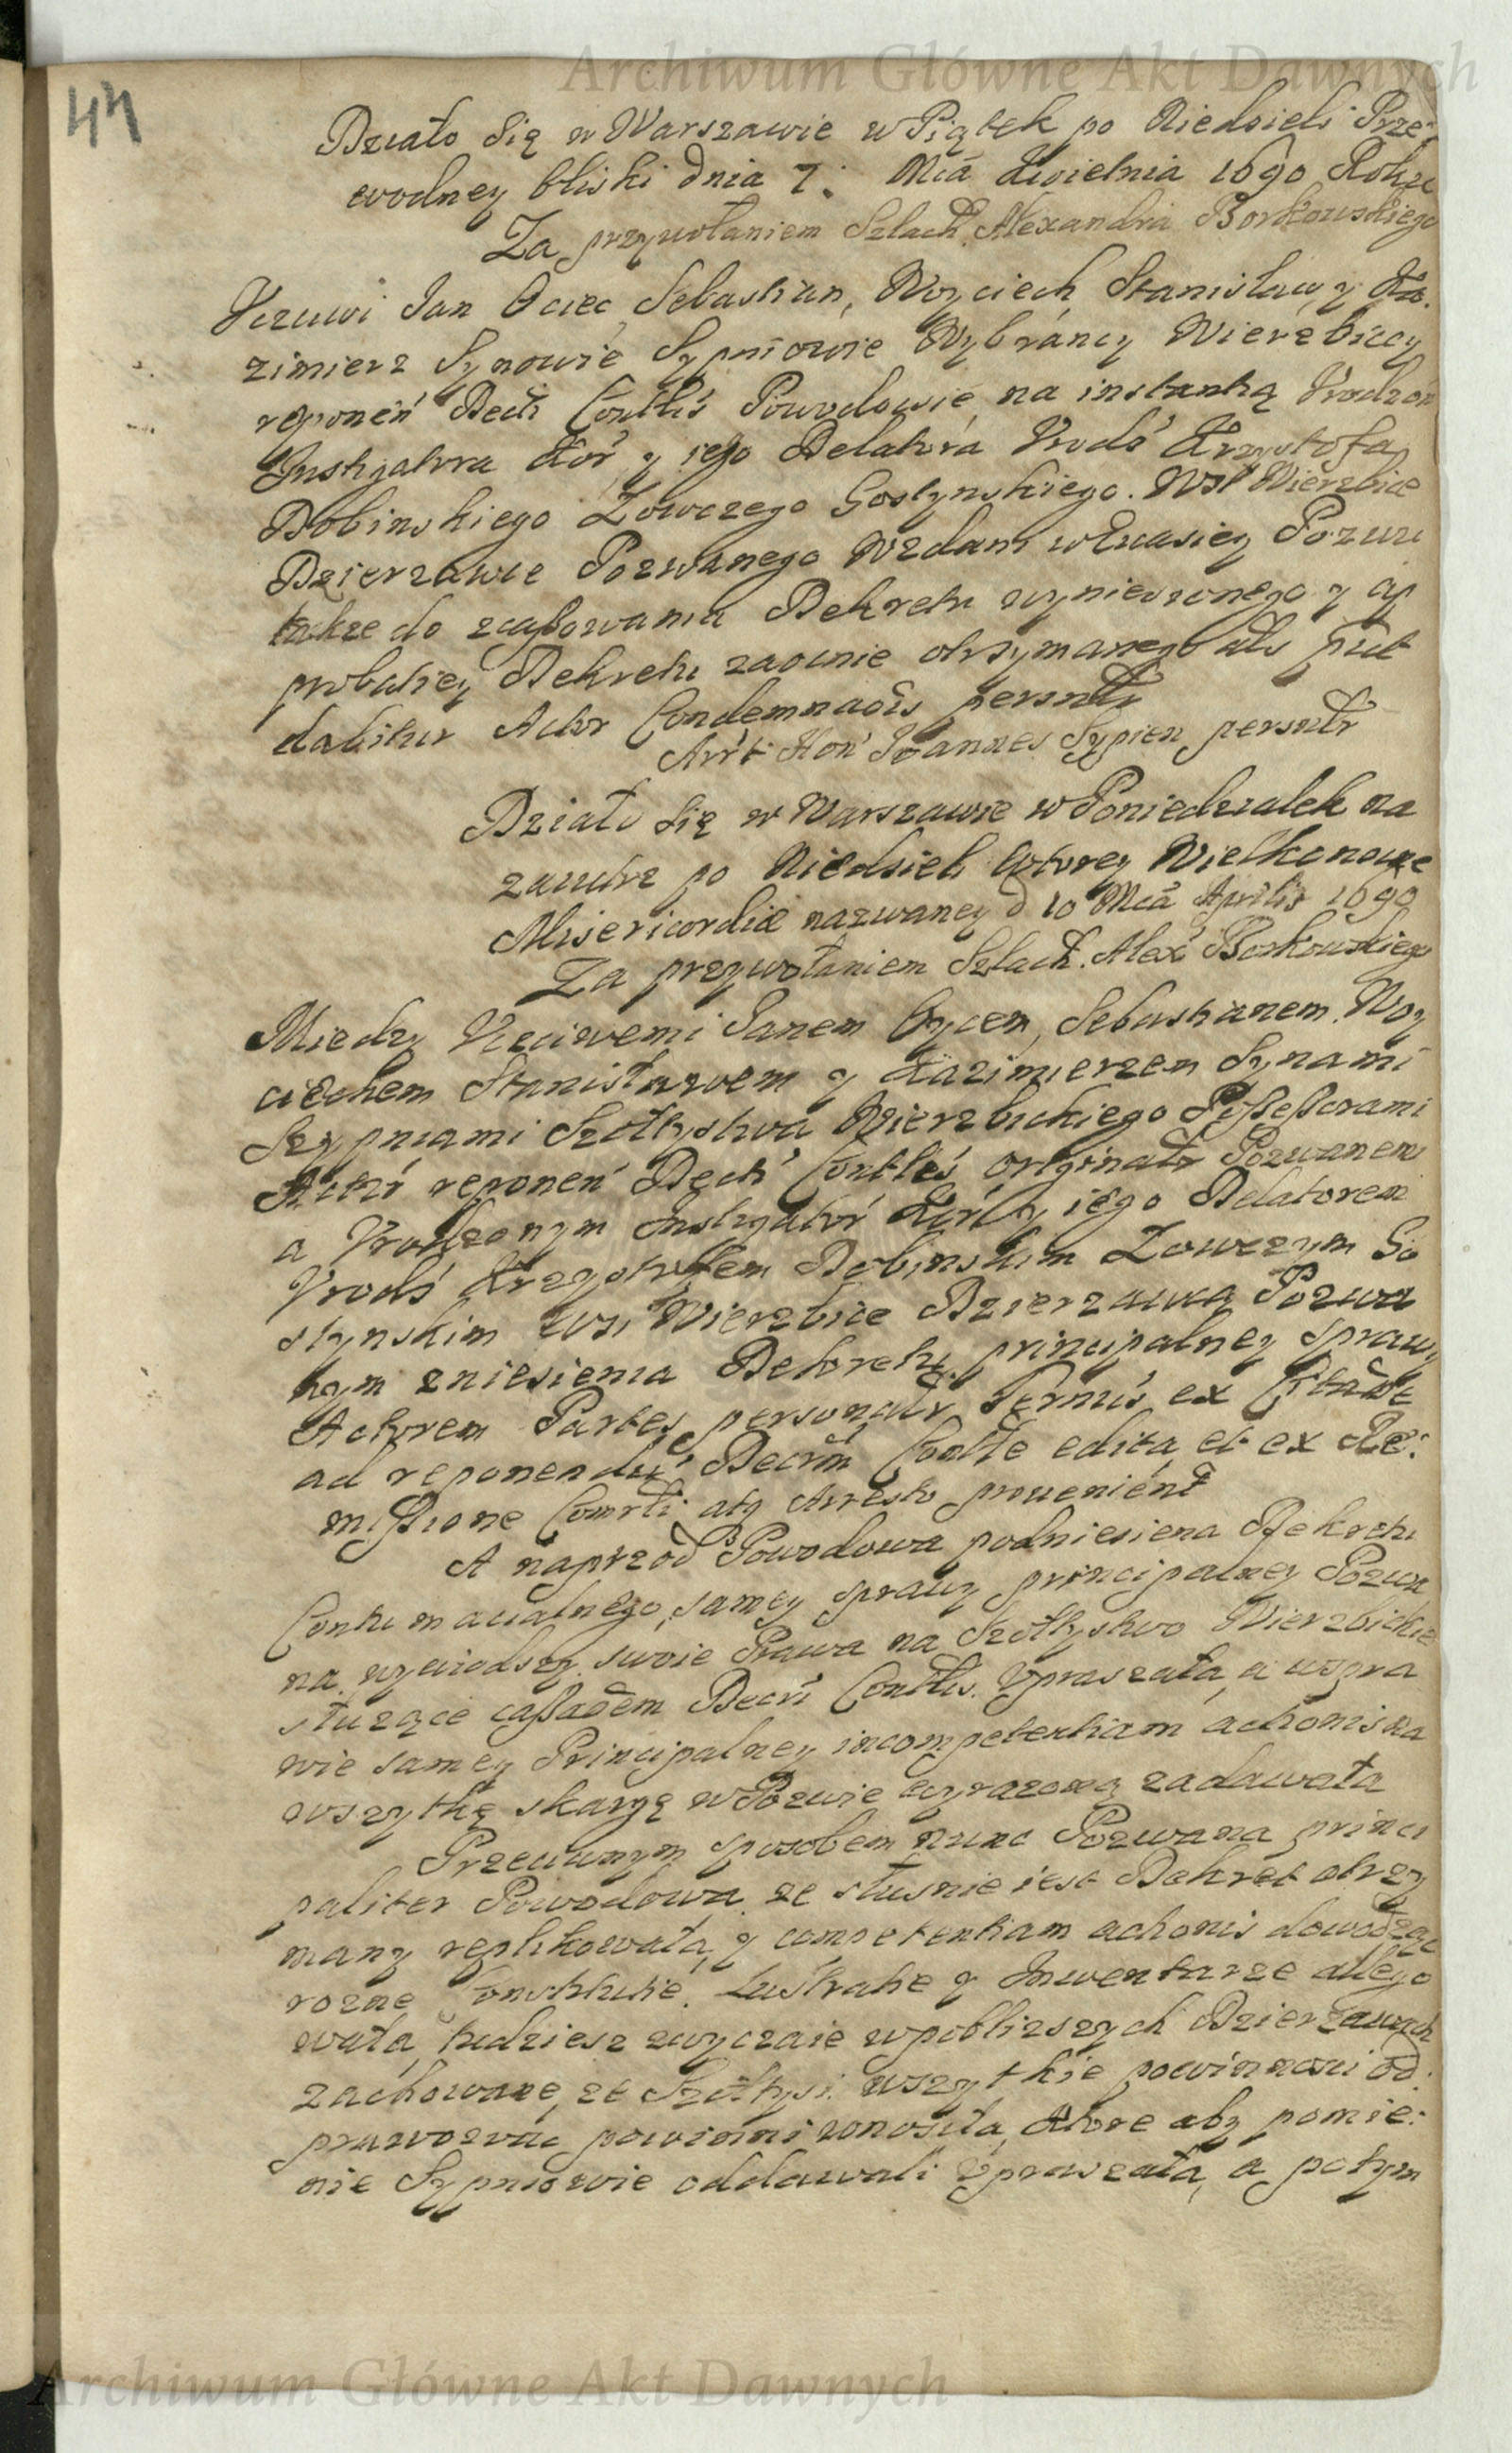 Archiwum Główne Akt Dawnych
44
Działo się w Warszawie w Piątek po Niedzieli Prze-
wodney bliski dnia 7. Mca Kwietnia 1690 Roku
Za przywołaniem Szlach. Alexandra Borkowskiego
Uczciwi Jan Ociec, Sebastian, Woyciech, Stanisław, y Ka-
zimierz Synowie Sypniowie Wybrancy Wierzbiccy
reponeń Decti Conttis Powodowie na instantią Urodzon
Instygatora Kor. y iego Delatora Urodz Krzysztofa
Bobinskiego Łowczego Gostynskiego. Wsi Wierzbice
Dzierzawce Pozwanego względem Pozwu
takze do zcassowania Dekretu wyniesionego y ap
probatiey Dekretu zaocznie otrzymanego als put
dabitur Actor Condemnaois personltr
Arrt. Hon Joannes Sypien personltr
Działo się w Warszawie w Poniedziałek na
zaiutrz po Niedzieli wtorey Wielkonocne
Misericordiæ nazwaney d 10 Mca Aprilis 1690
Za przywołaniem Szlach. Alex Borkowskiego
Miedzy Uczciwemi Janem Oycem, Sebastianem, Woy
ciechem Stanisławem y Kazimierzem Synami
Szypniami Szołtystwa Wierzbickiego Possessorami
reponeń Decti Conttis originałr Pozwanemi
a Urodzonym Instygator Kor. y iego Delatorem
Urodz Krzysztofem Bobinskim Łowczym Go
stynskim Wsi Wierzbice Dzierzawcą Pozwa
nym zniesienia Dekretu principalney sprawy
Actorem Partes personalr Termis ex Cittaoe
ad reponendu Decrm Contte edita et ex Re-
missione Comrti atq Arresto provenient
A naprzod Powodowa podniesienia Dekretu
Contumacialnego, samey sprawy principalney Pozwa
na wywiodszy swoie Prawa na Szołtystwo Wierzbickie
słuzące cassaoem Decri Conttis. Upraszała, a wspra
wie samey Principalney incompetentiam actionis na
wszytkę skargę w Pozwie wyrazoną zadawała
Przeciwnym sposobem nunc Pozwana princi
paliter Powodowa ze słusnie iest Dekret otrzy
many replikowała, y competentiam actionis dowodząc
rozne Constitutie, Lustratie y Inwentarze allego
wała, tudziesz zwyczaie wpoblizszych Dzierzawach
zachowane, ze Szołtysi wszytkie powinnosci od-
prawowac powinni wnosiła, ktore aby pomie-
nie Sypniowie oddawali upraszała, a potym
Archiwum Główne Akt Dawnych